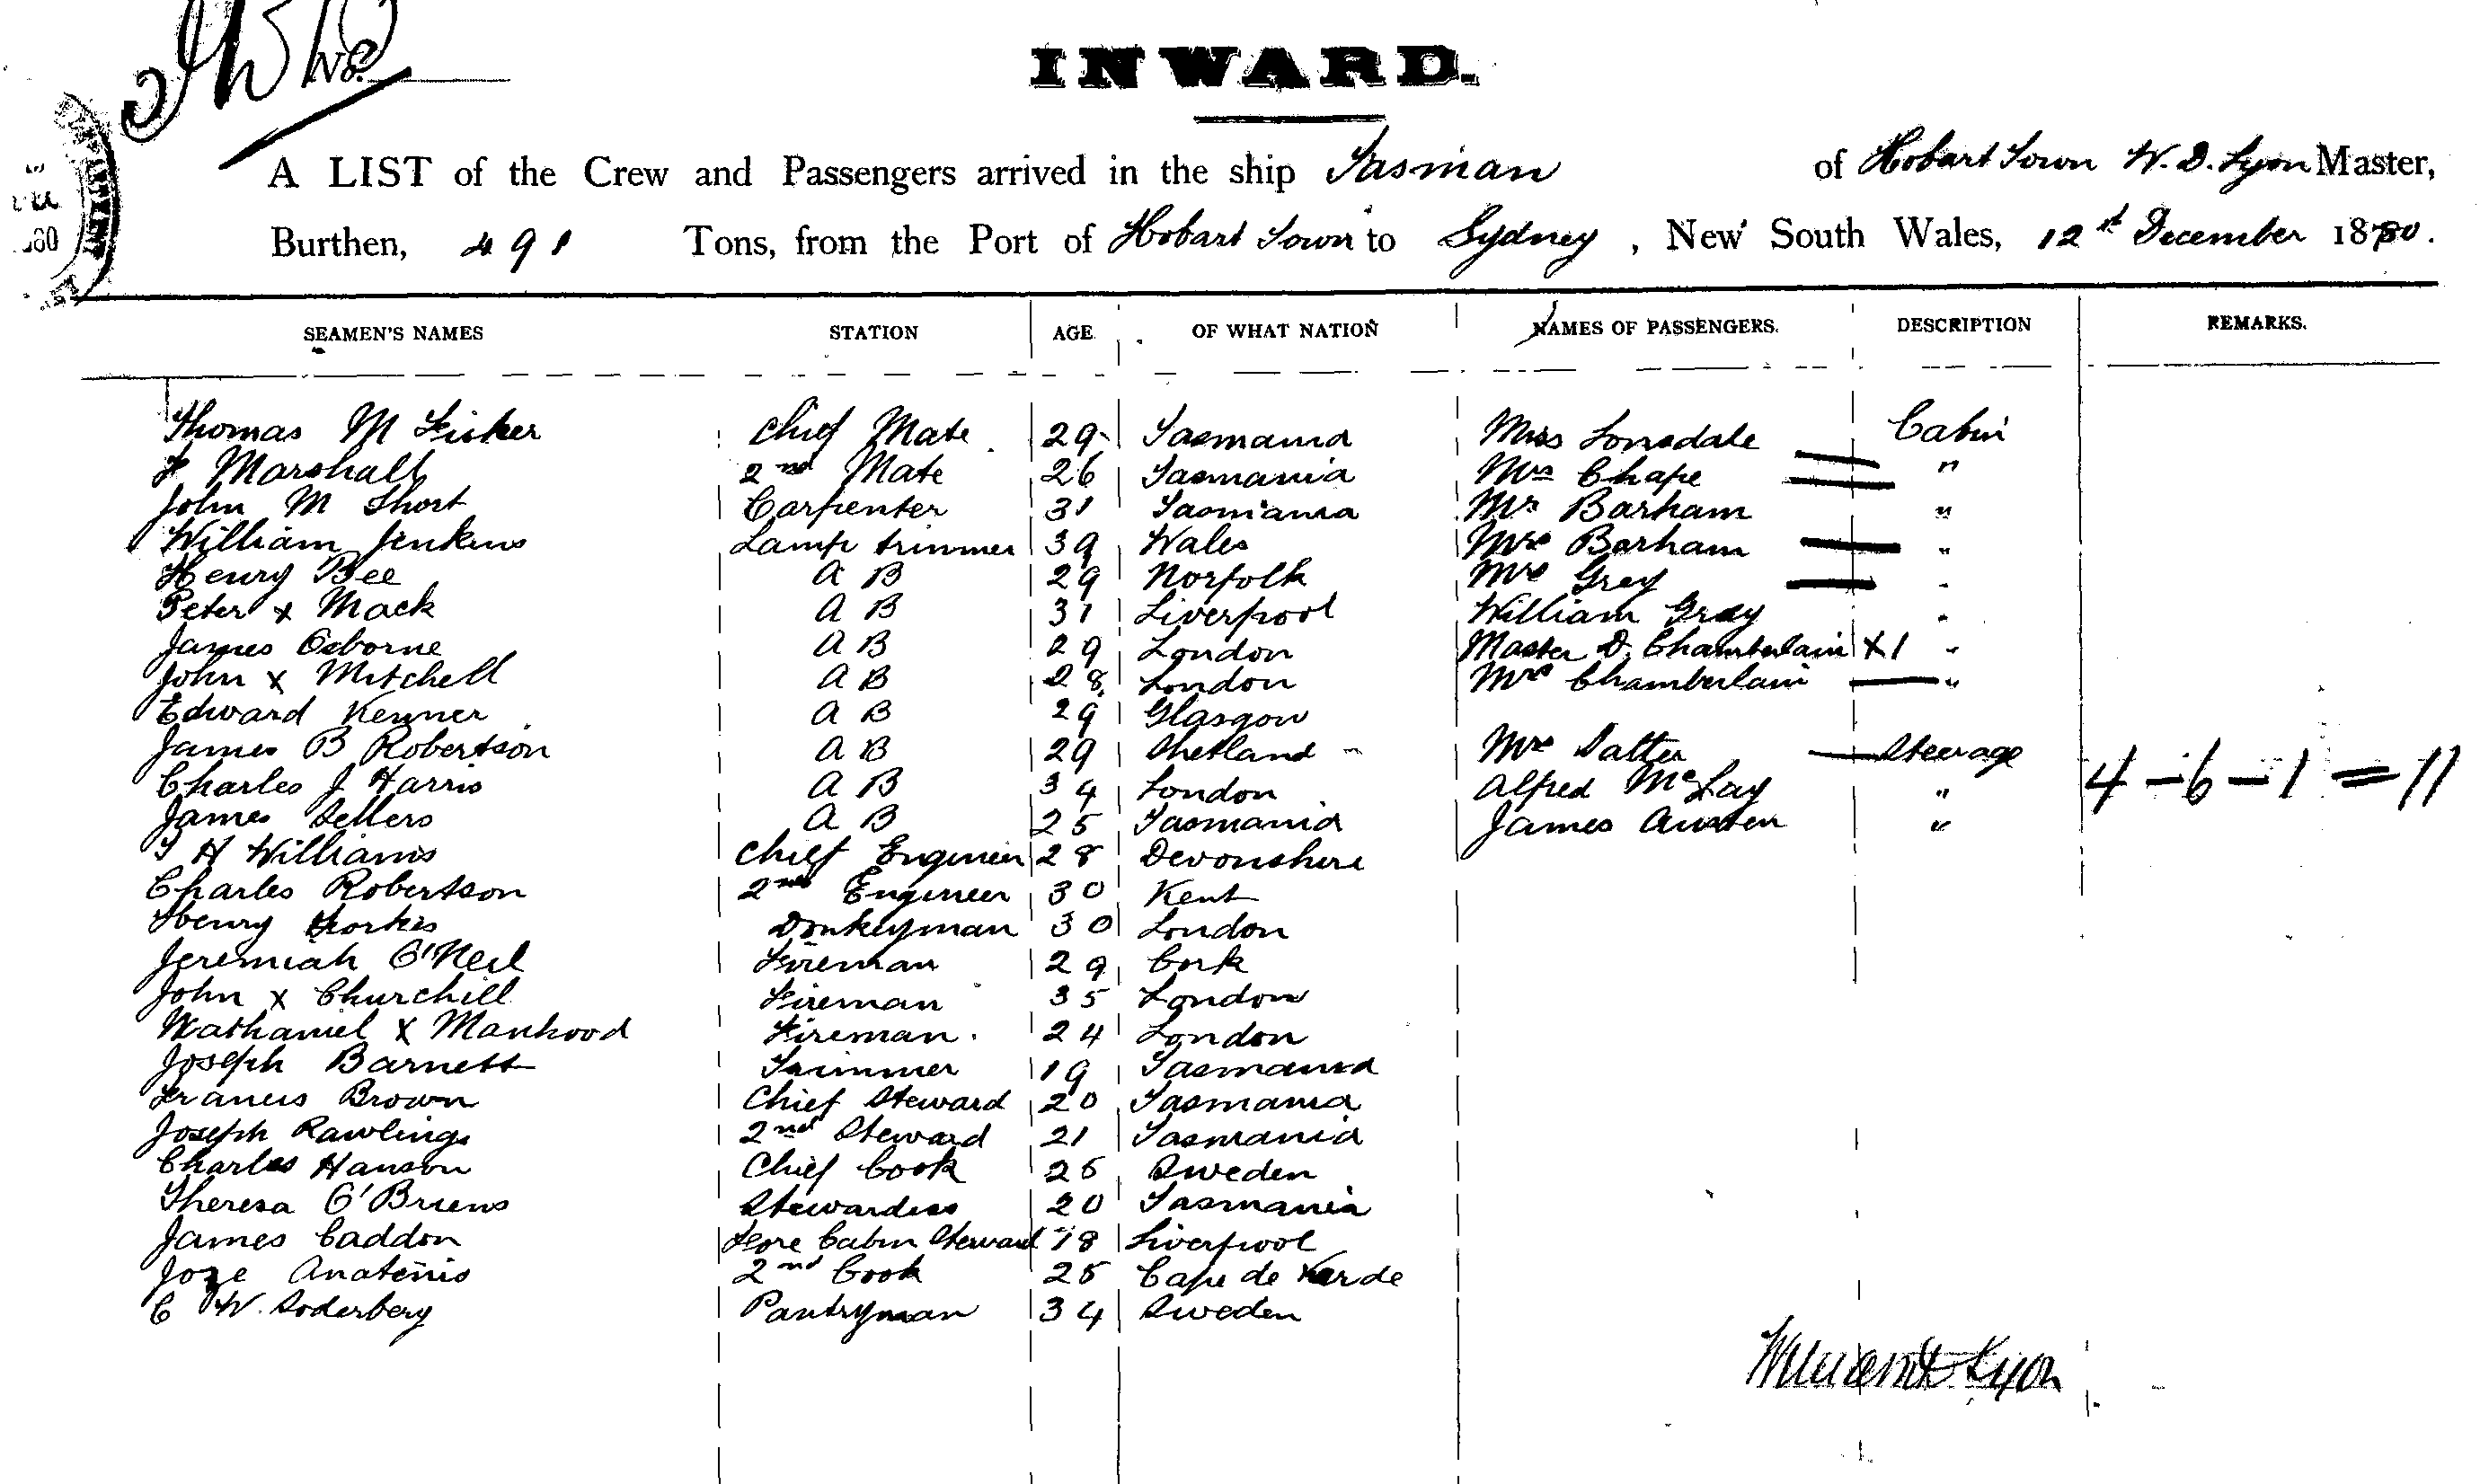 No.
INWARD.
A LIST of the Crew and Passengers arrived in the ship Tasman of Hobart Town W. D. Lyon Master,
Burthen, 491 Tons, from the Port of Hobart Town to Sydney, New South Wales, 12th December 1880.
SEAMEN'S NAMES STATION AGE OF WHAT NATION NAMES OF PASSENGERS. DESCRIPTION REMARKS.
Thomas M Fisher Chief Mate 29 Tasmania Miss Lonsdale Cabin
F Marshall 2nd Mate 26 Tasmania Mrs Chape "
John M Short Carpenter 31 Tasmania Mr Barham "
William Jenkins Lamp trimmer 39 Wales Mrs Barham "
Henry Bee A B 29 Norfolk Mrs Grey "
Peter x Mack A B 31 Liverpool William Gray "
James Osborne A B 29 London Master D. Chamberlain X1 "
John x Mitchell A B 28 London Mrs Chamberlain "
Edward Kenner A B 29 Glasgow
James B Robertson A B 29 Shetland Mrs Salter Steerage
Charles J Harris A B 34 London Alfred McLay " 4-6-1=11
James Sellers A B 25 Tasmania James Austen "
T H Williams Chief Engineer 28 Devonshire
Charles Robertson 2nd Engineer 30 Kent
Henry Donkeyman 30 London
Jeremiah O'Neil Fireman 29 Cork
John x Churchill Fireman 35 London
Nathaniel x Mankood Fireman 24 London
Joseph Barnett Trimmer 19 Tasmania
Francis Brown Chief Steward 20 Tasmania
Joseph Rawlings 2nd Steward 21 Tasmania
Charles Hanson Chief Cook 25 Sweden
Theresa O'Briens Stewardess 20 Tasmania
James Caddon Fore Cabin Steward 18 Liverpool
Joze 2nd Cook 25 Cape de Verde
C W. Soderberg Pantryman 34 Sweden
Lyon